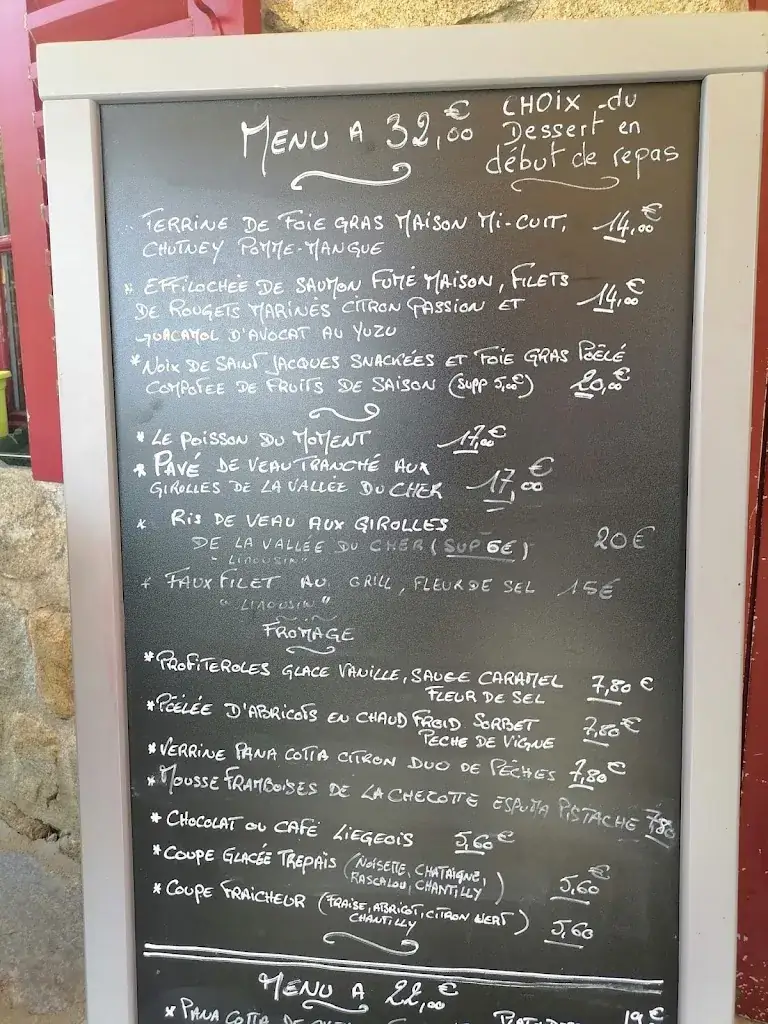 MENU A 32,00 €
CHOIX du
Dessert en
début de repas
TERRINE DE FOIE GRAS MAISON MI-CUIT, 14,00 €
CHUTNEY POMME-MANGUE
* EFFILOCHÉE DE SAUMON FUMÉ MAISON, FILETS
DE ROUGETS MARINÉS CITRON PASSION ET 14,00 €
GUACAMOL D'AVOCAT AU YUZU
* NOIX DE SAINT JACQUES SNACKÉES ET FOIE GRAS POÊLÉ
COMPOTEE DE FRUITS DE SAISON (SUPP 5,00€) 20,00 €
* LE POISSON DU MOMENT 17,00 €
* PAVÉ DE VEAU TRANCHÉ AUX
GIROLLES DE LA VALLÉE DU CHER 17,00 €
* RIS DE VEAU AUX GIROLLES
DE LA VALLÉE DU CHER (SUP 6€) 20€
"LIMOUSIN"
* FAUX FILET AU GRILL, FLEUR DE SEL 15€
"LIMOUSIN"
FROMAGE
* PROFITEROLES GLACE VANILLE, SAUCE CARAMEL 7,80 €
FLEUR DE SEL
* POÊLÉE D'ABRICOTS EN CHAUD FROID SORBET 7,80 €
PECHE DE VIGNE
* VERRINE PANA COTTA CITRON DUO DE PÊCHES 7,80 €
* MOUSSE FRAMBOISES DE LA CHEZOTTE ESPUMA PISTACHE 7,80
* CHOCOLAT OU CAFÉ LIEGEOIS 5,60 €
* COUPE GLACÉE TREPAIS (NOISETTE, CHATAIGNE, 5,60 €
RASCALOU, CHANTILLY)
* COUPE FRAICHEUR (FRAISE, ABRICOT, CITRON VERT) 5,60
CHANTILLY
MENU A 22,00 €
* PANA COTTA DE 19€